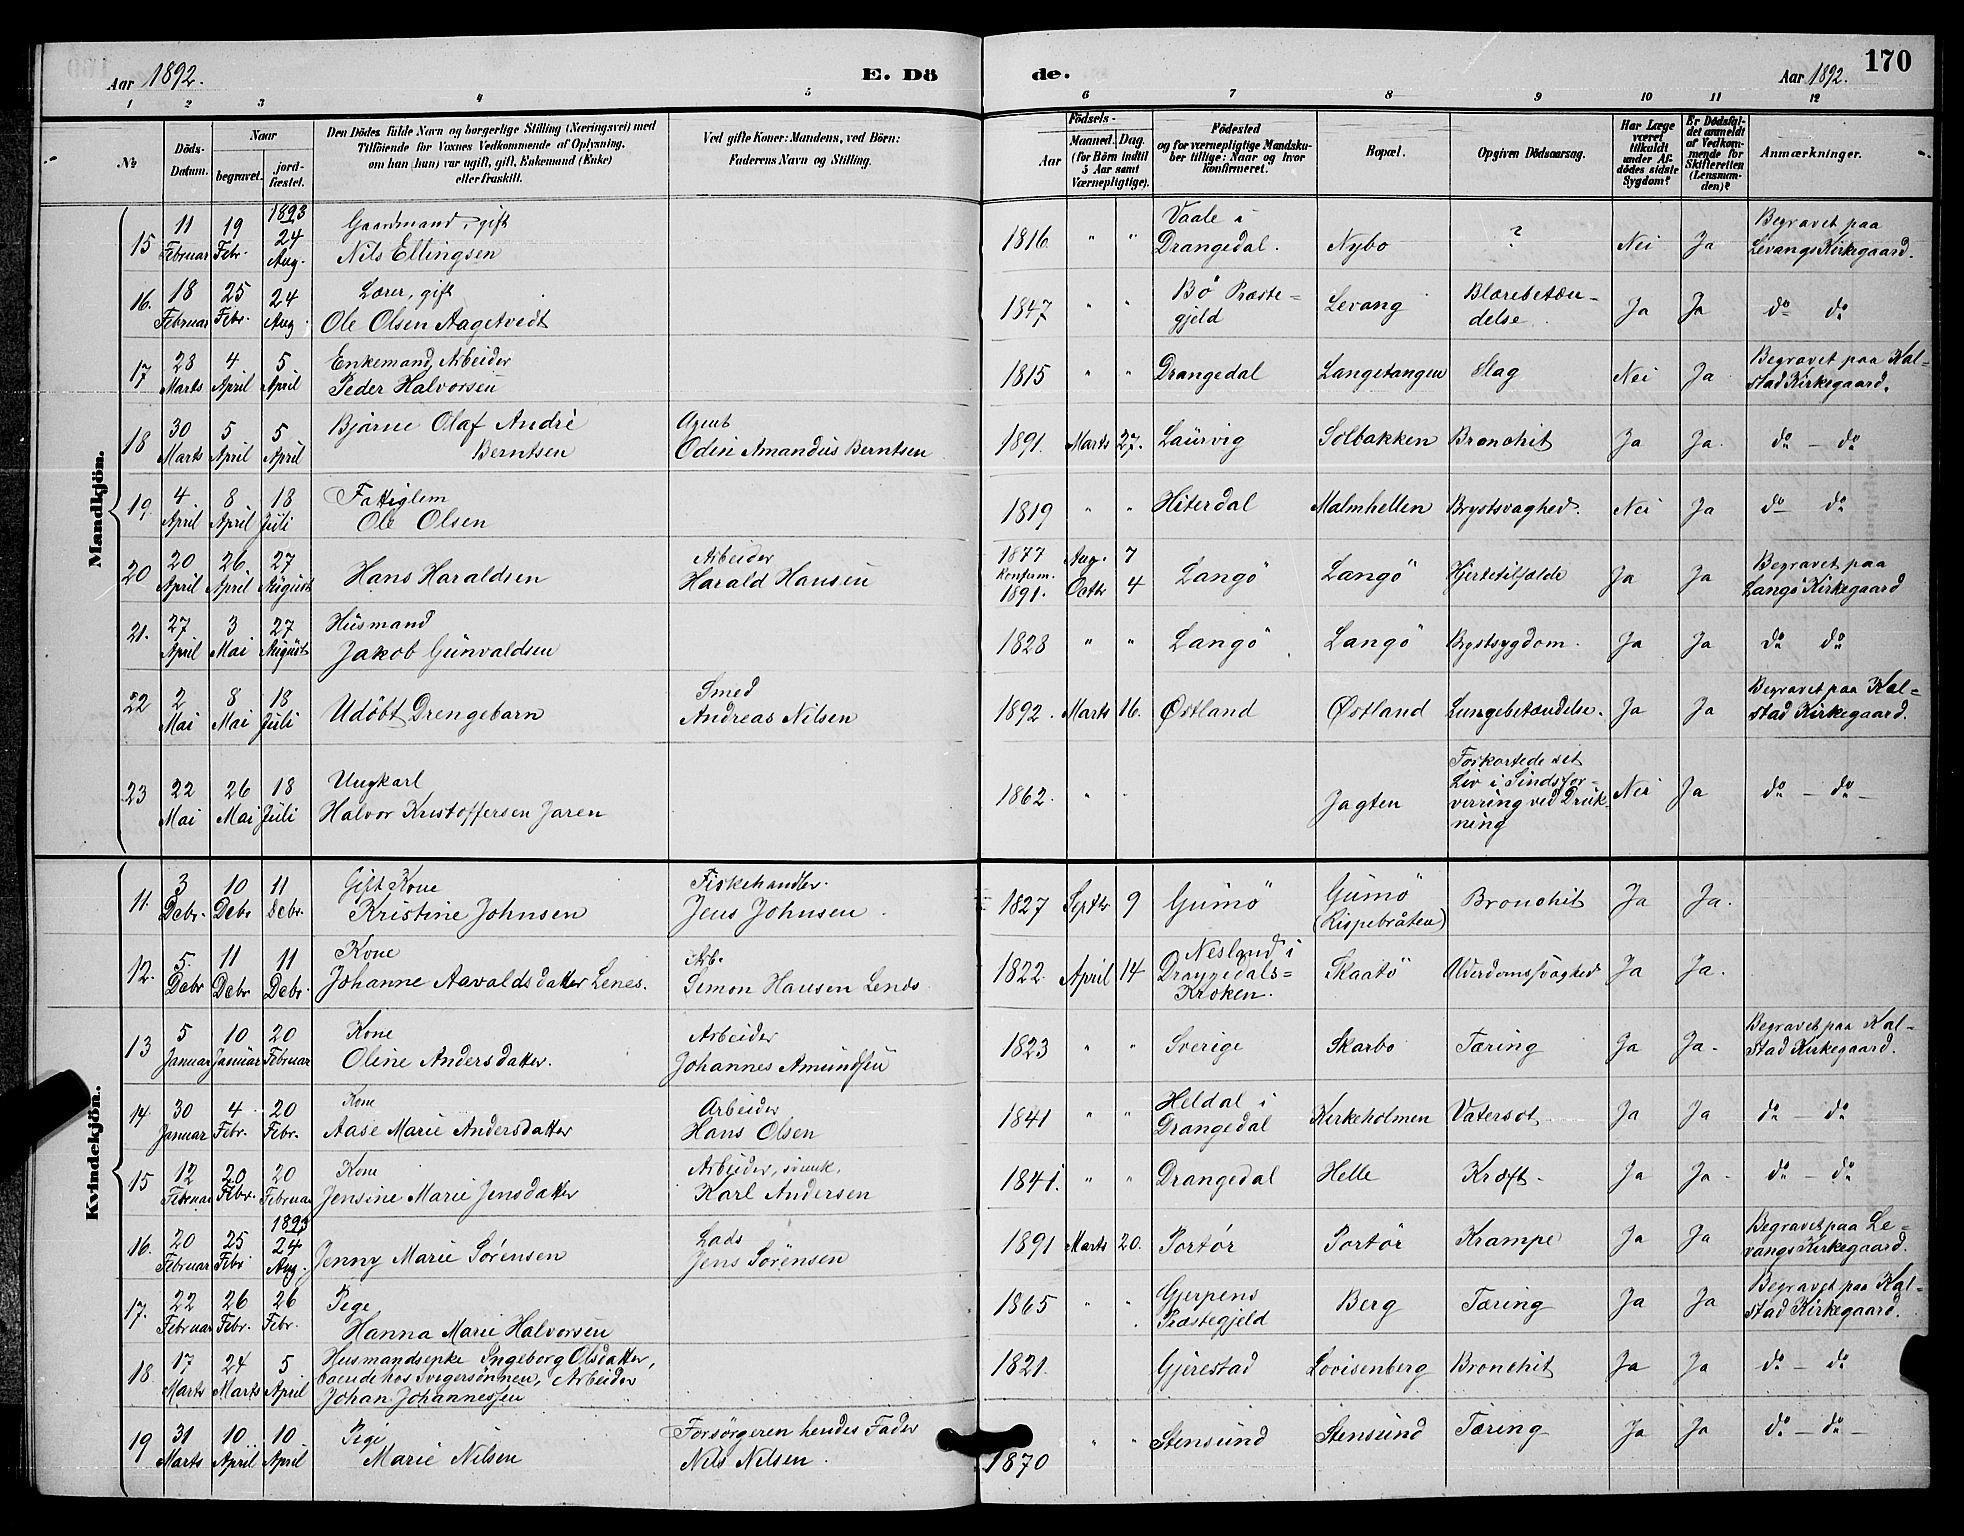 Aar 1892. E. Dö de. Aar 1892. 170
1 2 3 4 5 6 7 8 9 10 11 12
No
Döds-
Datum.
Naar
begravet.
jord-
fæstet.
Den Dödes fulde Navn og borgerlige Stilling (Næringsvei) med
Tilföiende for Voxnes Vedkommende af Oplysning,
om han (hun) var ugift, gift, Enkemand (Enke)
eller fraskilt.
Ved gifte Koner: Mandens, ved Börn:
Faderens Navn og Stilling.
Födsels-
Aar
Maaned. Dag.
(for Börn indtil
5 Aar samt
Værnepligtige).
Födested
og for værnepligtige Mandsku-
ber tillige: Naar og hvor
konfirmeret.
Bopæl.
Opgiven Dödsaarsag.
Har Læge
været
tilkaldt
under Af-
dödes sidste
Sygdom?
Er Dödsfal-
det anmeldt
af Vedkom-
mende for
Skifteretten
(Lensman-
den)?
Anmærkninger.
Mandkjön.
15 11 Februar 19 Febr. 1893 24 Aug. Gaardmand, gift
Nils Ellingsen 1816 " " Vaale i
Drangedal. Nybo ? Nei Ja Begravet paa
Levangs Kirkegaard.
16. 18 Februar 25 Febr. 24 Aug. Lærer, gift
Ole Olsen Aagetvedt 1847 " " Bö Præste-
gjeld Levang Blærebetæn-
delse. Ja Ja do do
17 28 Marts 4 April 5 April Enkemand, Arbeider
Peder Halvorsen 1815 " " Drangedal Langetangen Slag Nei Ja Begravet paa Kal-
stad Kirkegaard.
18 30 Marts 5 April 5 April Bjarne Olaf André
Berntsen Agent
Odin Amandus Berntsen 1891. Marts 27. Laurvig Solbakken Bronchit Ja Ja. do - do
19. 4 April 8 April 18 Juli Fattiglem
Ole Olsen 1819 " " Hiterdal Malmhellen Brystsvaghed. Nei Ja do do
20 20 April 26 April 27 August Hans Haraldsen Arbeider
Harald Hansen 1877 Aug. 7
Konfirm.
1891. Octbr 4 Langö Langö Hjertetilfælde Ja Ja Begravet paa
Langö Kirkegaard
21. 27 April 3 Mai 27 August Husmand
Jakob Gunvaldsen 1828 " " Langö Langö Brystsygdom. Ja Ja do do
22 2 Mai 8 Mai 18 Juli Udöbt Drengebarn Smed
Andreas Nilsen 1892. Marts 16. Østland Østland Lungebetændelse. Ja Ja Begravet paa Kal-
stad Kirkegaard.
23 22 Mai 26 Mai 18 Juli Ungkarl
Halvor Kristoffersen Jaren 1862. " Jagten Forkortede sit
Liv i Sindsfor-
virring ved Druk-
ning Nei Ja do - do -
Kvindekjön.
11. 3 Debr. 10 Debr 11 Debr. Gift Kone
Kristine Johnsen Fiskehandler.
Jens Johnsen. 1827 Septbr 9 Gumö Gumö
(Rispebråten) Bronchit Ja Ja.
12. 5. Debr 11 Debr 11 Debr. Kone
Johanne Aavaldsdatter Lenes. Arb.
Simon Hansen Lenes 1822. April 14 Nesland i
Drangedals=
Kroken. Skaatö Alderdomssvaghed Ja Ja.
13 5 Januar 10 Januar 20 Februar Kone
Oline Andersdatter. Arbeider
Johannes Amundsen 1823 " " Sverige Skarbo Tæring Ja Ja- Begravet paa Kal-
stad Kirkegaard.
14. 30 Januar 4 Febr. 20 Febr. Kone
Aase Marie Andersdatter Arbeider
Hans Olsen 1841 " " Heldal i
Drangedal Kirkeholmen Vatersot Ja Ja do - do
15 12 Februar 20 Febr. 20 Februar Kone
Jensine Marie Jensdatter Arbeider, svensk.
Karl Andersen 1841. " " Drangedal Helle Kræft - Ja Ja - do - do
16. 20 Februar 25 Febr 1893 24 Aug. Jenny Marie Sörensen Lods
Jens Sörensen 1891 Marts 20. Portör Portör Krampe Ja Ja Begravet paa Le-
vangs Kirkegaard.
17. 22 Februar 26 Febr. 26 Febr. Pige
Hanna Marie Halvorsen 1865 " " Gjerpens
Præstegjeld Berg Tæring Ja Ja Begravet paa Kal-
stad Kirkegaard.
18 17 Marts 24 Marts 5 April Husmandsenke Ingeborg Olsdatter,
boende hos Svigersönnen, Arbeider
Johan Johannessen 1821. Gjerestad Lovisenberg Bronchit Ja Ja do - do
19 31 Marts 10 April 10 April Pige
Marie Nilsen Forsörgeren hendes Fader
Nils Nilsen. 1870 " " Stensund Stensund Tæring Ja Ja do - do -